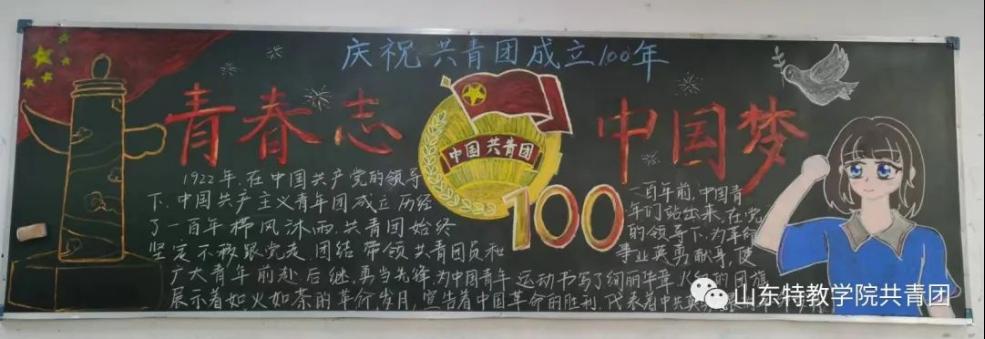 庆祝共青团成立100年
青春志
中国梦
中国共青团
100
1922年,在中国共产党的领导
下,中国共产主义青年团成立历经
了一百年栉风沐雨,共青团始终
坚定不移跟党走,团结带领共青团员和
广大青年前赴后继,勇当先锋,为中国青年运动书写了绚丽华章
展示着如火如荼的革命岁月,宣告着中国革命的胜利,代表着中
一百年前,中国青
年们站出来,在党
的领导下,为革命
事业英勇献身,使
山东特教学院共青团